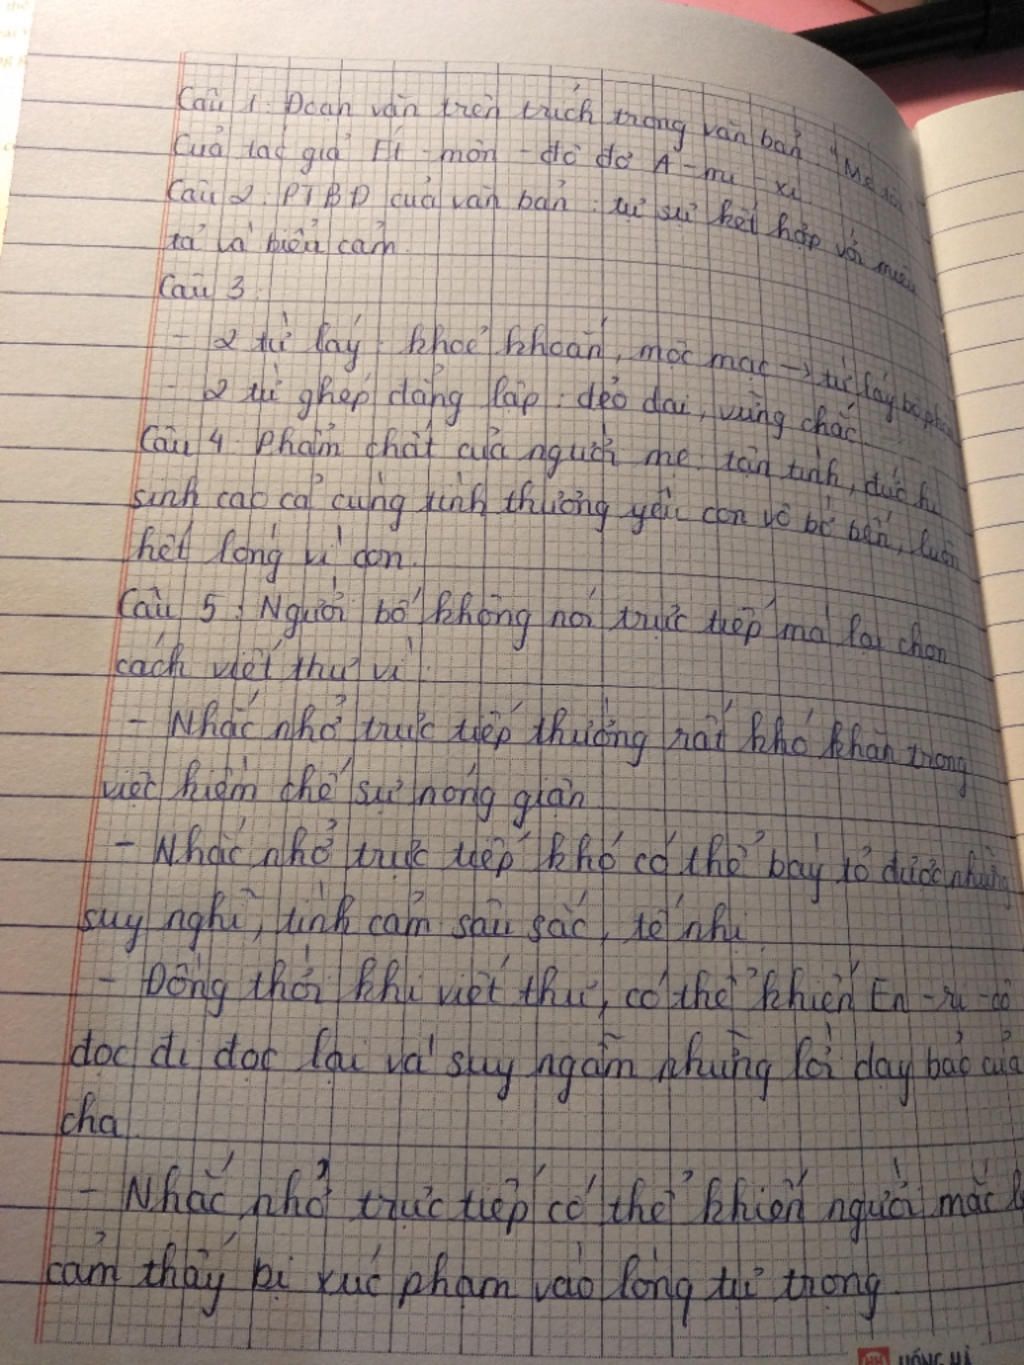 Câu 1: Đoạn văn trên trích trong văn bản "Mẹ tôi"
Của tác giả Ét-môn-đô đơ A-mi-xi
Câu 2: PTBĐ của văn bản: tự sự kết hợp với miêu
tả và biểu cảm.
Câu 3
- 2 từ láy: khoẻ khoắn, mộc mạc → từ láy bộ phận
- 2 từ ghép đẳng lập: dẻo dai, vững chắc
Câu 4: Phẩm chất của người mẹ: tận tình, đức hi
sinh cao cả cùng tình thương yêu con vô bờ bến, luôn
hết lòng vì con.
Câu 5: Người bố không nói trực tiếp mà lại chọn
cách viết thư vì:
- Nhắc nhở trực tiếp thường rất khó khăn trong
việc kiềm chế sự nóng giận
- Nhắc nhở trực tiếp khó có thể bày tỏ được những
suy nghĩ, tình cảm sâu sắc, tế nhị.
- Đồng thời khi viết thư, có thể khiến En-ri-cô
đọc đi đọc lại và suy ngẫm những lời dạy bảo của
cha.
- Nhắc nhở trực tiếp có thể khiến người mắc
cảm thấy bị xúc phạm vào lòng tự trọng.
HỒNG HÀ